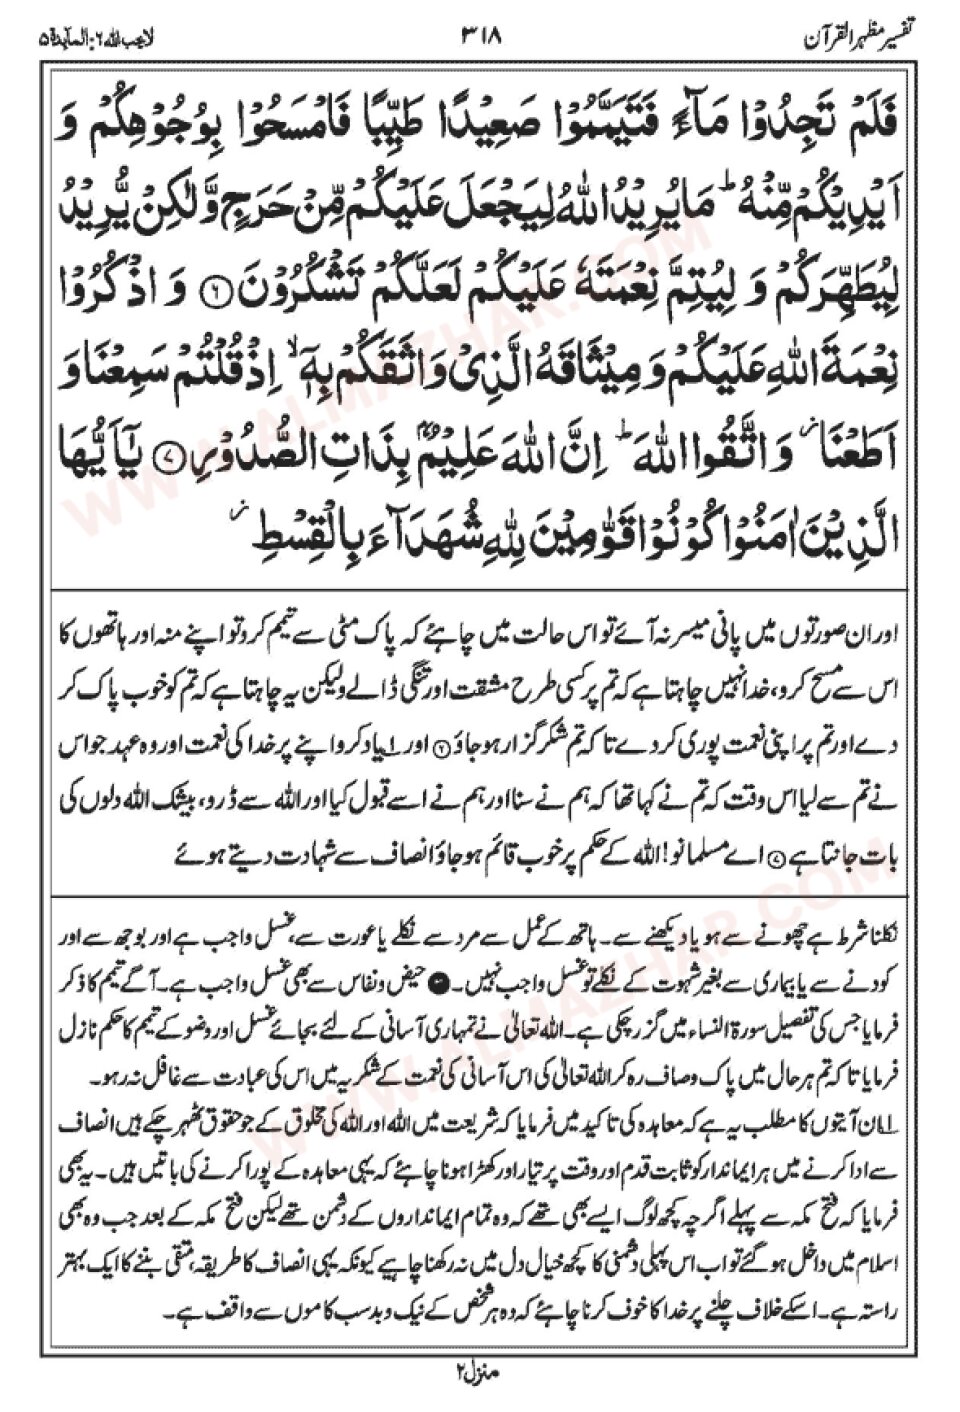 تفسیر مظہر القرآن ۳۱۸ لا یحب اللہ ۶: المآیدۃ ۵
فَلَمْ تَجِدُوْا مَآءً فَتَيَمَّمُوْا صَعِيْدًا طَيِّبًا فَامْسَحُوْا بِوُجُوْهِكُمْ وَ
اَيْدِيْكُمْ مِّنْهُ ؕ مَا يُرِيْدُ اللّٰهُ لِيَجْعَلَ عَلَيْكُمْ مِّنْ حَرَجٍ وَّلٰكِنْ يُّرِيْدُ
لِيُطَهِّرَكُمْ وَ لِيُتِمَّ نِعْمَتَهٗ عَلَيْكُمْ لَعَلَّكُمْ تَشْكُرُوْنَ ۶ وَ اذْكُرُوْا
نِعْمَةَ اللّٰهِ عَلَيْكُمْ وَ مِيْثَاقَهُ الَّذِىْ وَاثَقَكُمْ بِهٖۤ ۙ اِذْ قُلْتُمْ سَمِعْنَا وَ
اَطَعْنَا ؗ وَ اتَّقُوا اللّٰهَ ؕ اِنَّ اللّٰهَ عَلِيْمٌۢ بِذَاتِ الصُّدُوْرِ ۷ يٰۤاَيُّهَا
الَّذِيْنَ اٰمَنُوْا كُوْنُوْا قَوّٰمِيْنَ لِلّٰهِ شُهَدَآءَ بِالْقِسْطِ ؗ
اور ان صورتوں میں پانی میسر نہ آئے تو اس حالت میں چاہئے کہ پاک مٹی سے تیمم کرو تو اپنے منہ اور ہاتھوں کا
اس سے مسح کرو، خدا نہیں چاہتا ہے کہ تم پر کسی طرح مشقت اور تنگی ڈالے ولیکن یہ چاہتا ہے کہ تم کو خوب پاک کر
دے اور تم پر اپنی نعمت پوری کردے تاکہ تم شکر گزار ہو جاؤ ۶ اور ۱ یاد کرو اپنے پر خدا کی نعمت اور وہ عہد جو اس
نے تم سے لیا اس وقت کہ تم نے کہا تھا کہ ہم نے سنا اور ہم نے اسے قبول کیا اور اللہ سے ڈرو، بیشک اللہ دلوں کی
بات جانتا ہے ۷ اے مسلمانو! اللہ کے حکم پر خوب قائم ہو جاؤ انصاف سے شہادت دیتے ہوئے
نکلنا شرط ہے چھونے سے ہو یا دیکھنے سے۔ ہاتھ کے عمل سے مرد سے نکلے یا عورت سے، غسل واجب ہے اور بوجھ سے اور
کودنے سے یا بیماری سے بغیر شہوت کے نکلے تو غسل واجب نہیں۔ حیض و نفاس سے بھی غسل واجب ہے۔ آگے تیمم کا ذکر
فرمایا جس کی تفصیل سورۃ النساء میں گزر چکی ہے۔ اللہ تعالیٰ نے تمہاری آسانی کے لئے بجائے غسل اور وضو کے تیمم کا حکم نازل
فرمایا تاکہ تم ہر حال میں پاک و صاف رہ کر اللہ تعالیٰ کی اس آسانی کی نعمت کے شکریہ میں اس کی عبادت سے غافل نہ رہو۔
۱ ان آیتوں کا مطلب یہ ہے کہ معاہدہ کی تاکید میں فرمایا کہ شریعت میں اللہ اور اللہ کی مخلوق کے جو حقوق ٹھہر چکے ہیں انصاف
سے ادا کرنے میں ہر ایماندار کو ثابت قدم اور وقت پر تیار اور کھڑا ہونا چاہئے کہ یہی معاہدہ کے پورا کرنے کی باتیں ہیں۔ یہ بھی
فرمایا کہ فتح مکہ سے پہلے اگرچہ کچھ لوگ ایسے بھی تھے کہ وہ تمام ایمانداروں کے دشمن تھے لیکن فتح مکہ کے بعد جب وہ بھی
اسلام میں داخل ہو گئے تو اب اس پہلی دشمنی کا کچھ خیال دل میں نہ رکھنا چاہیے کیونکہ یہی انصاف کا طریقہ، متقی بننے کا ایک بہتر
راستہ ہے۔ اسکے خلاف چلنے پر خدا کا خوف کرنا چاہئے کہ وہ ہر شخص کے نیک و بد سب کاموں سے واقف ہے۔
منزل ۲
WWW.ALMAZHAR.COM
WWW.ALMAZHAR.COM